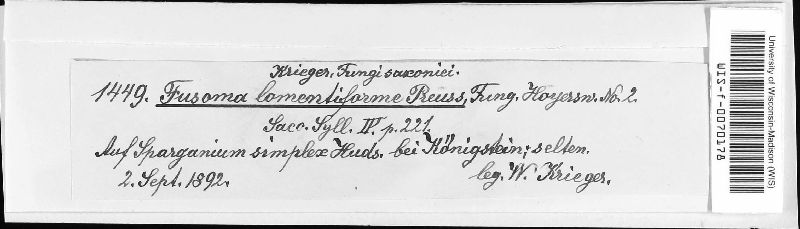 Krieger, Fungi saxonici.
1449. Fusoma lomentiforme Preuss, Fung. Hoyersw. No. 2.
Sacc. Syll. IV. p. 221
Auf Sparganium simplex Huds. bei Königstein; selten.
2. Sept. 1892.
leg. W. Krieger.
University of Wisconsin-Madison (WIS)
WIS-f-0070178